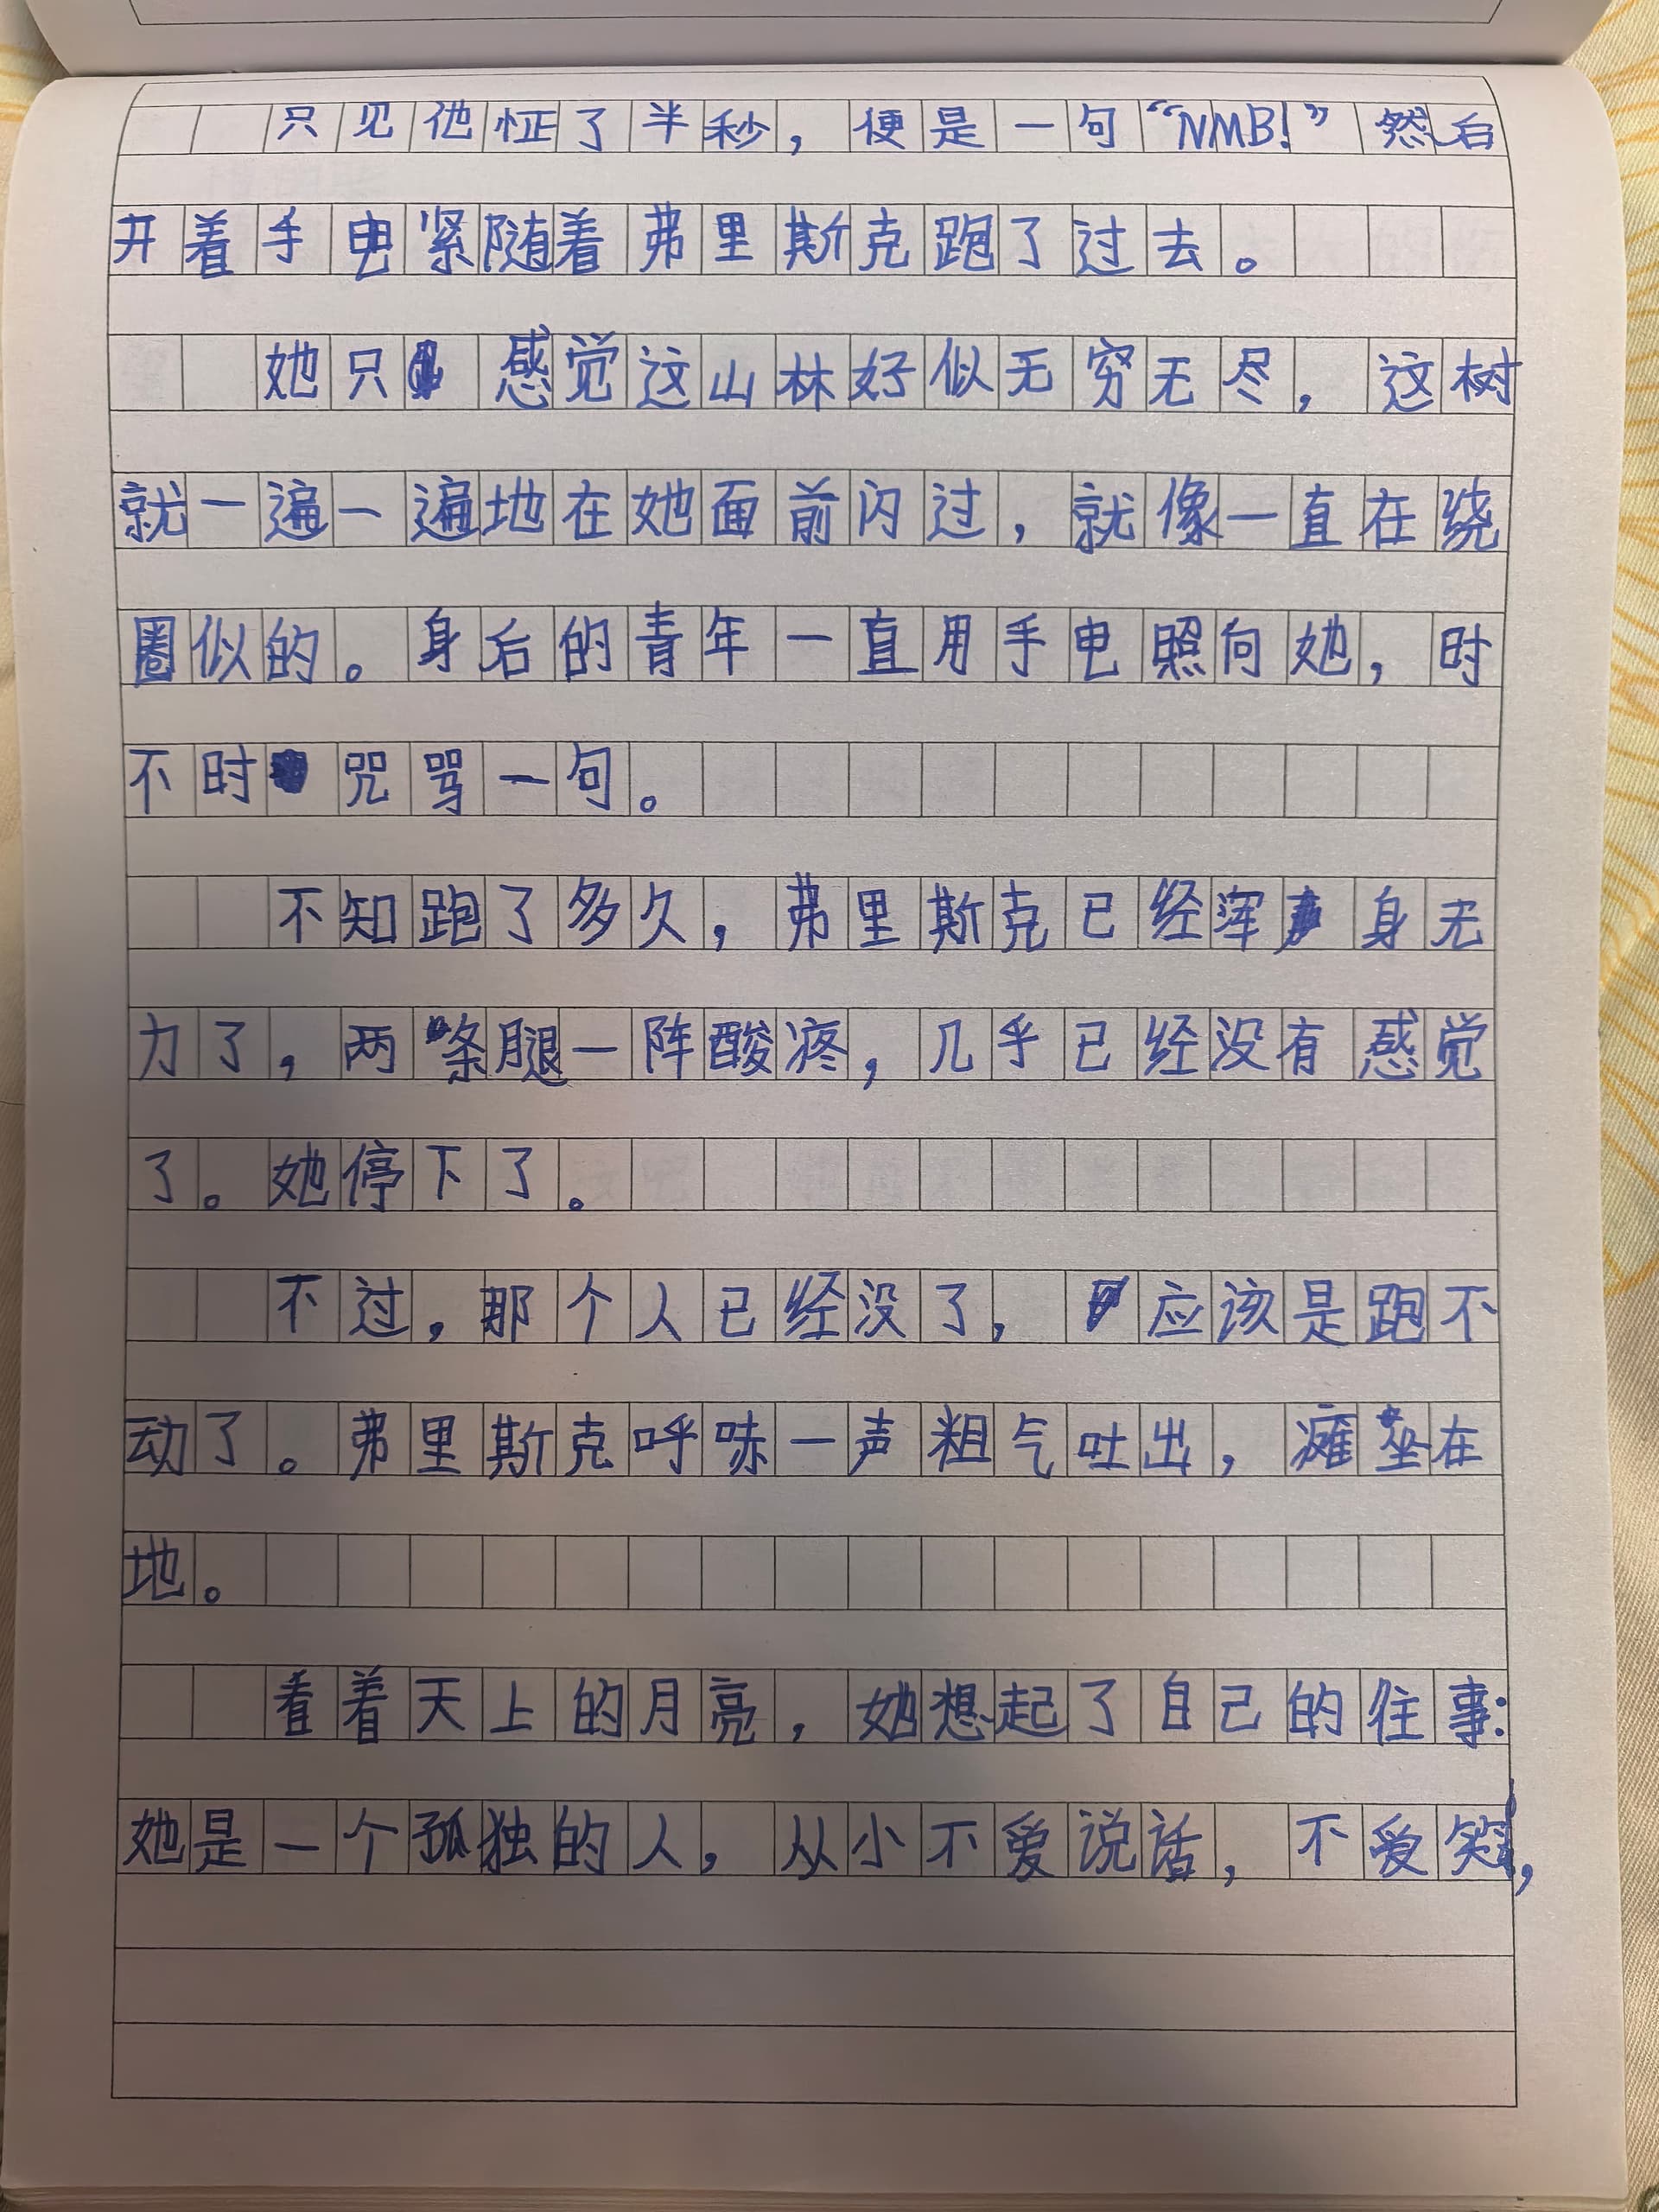 只见他怔了半秒，便是一句“NMB！”然后
开着手电紧随着弗里斯克跑了过去。
她只感觉这山林好似无穷无尽，这树
就一遍一遍地在她面前闪过，就像一直在绕
圈似的。身后的青年一直用手电照向她，时
不时咒骂一句。
不知跑了多久，弗里斯克已经浑身无
力了，两条腿一阵酸疼，几乎已经没有感觉
了。她停下了。
不过，那个人已经没了，应该是跑不
动了。弗里斯克呼哧一声粗气吐出，瘫坐在
地。
看着天上的月亮，她想起了自己的往事：
她是一个孤独的人，从小不爱说话，不爱笑，